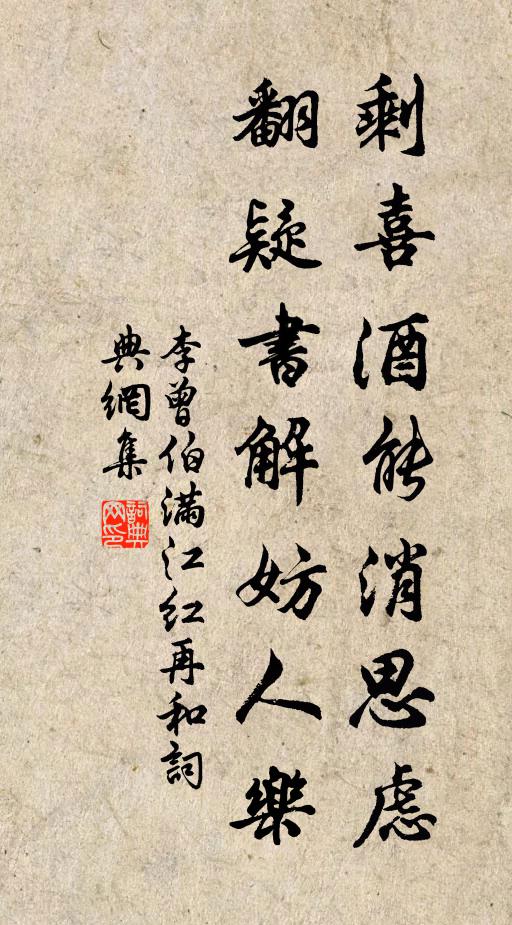 剩喜酒能消思慮
翻疑書解妨人樂
李曾伯滿江紅再和詞
典網集
詞典網印